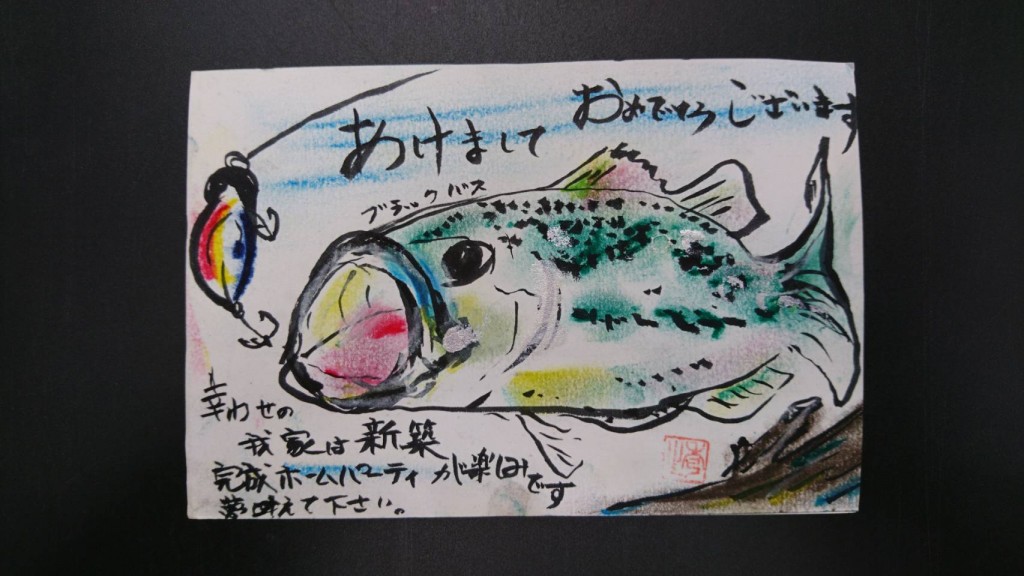 あけまして おめでとうございます
ブラックバス
幸わせの
我家は新築
完成ホームパーティが楽しみです
夢叶えて下さい。